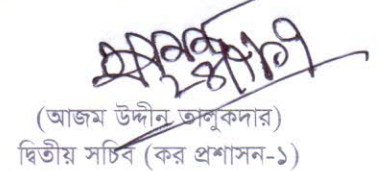 (আজম উদ্দীন তালুকদার)
দ্বিতীয় সচিব (কর প্রশাসন-১)